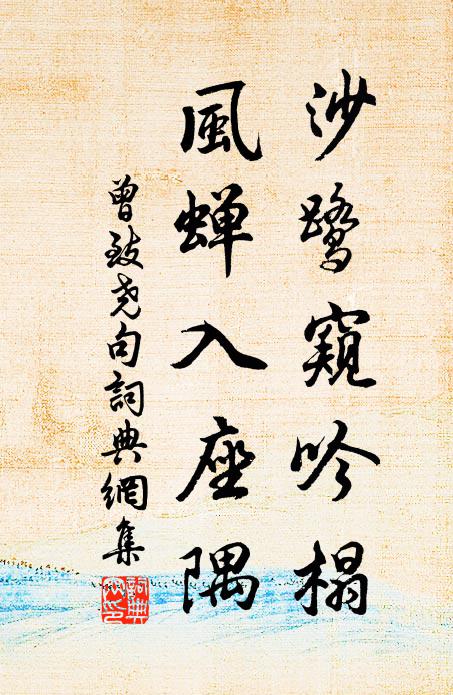 沙鷺窺吟榻
風蝉入座隅
曾致尧句詞典網集